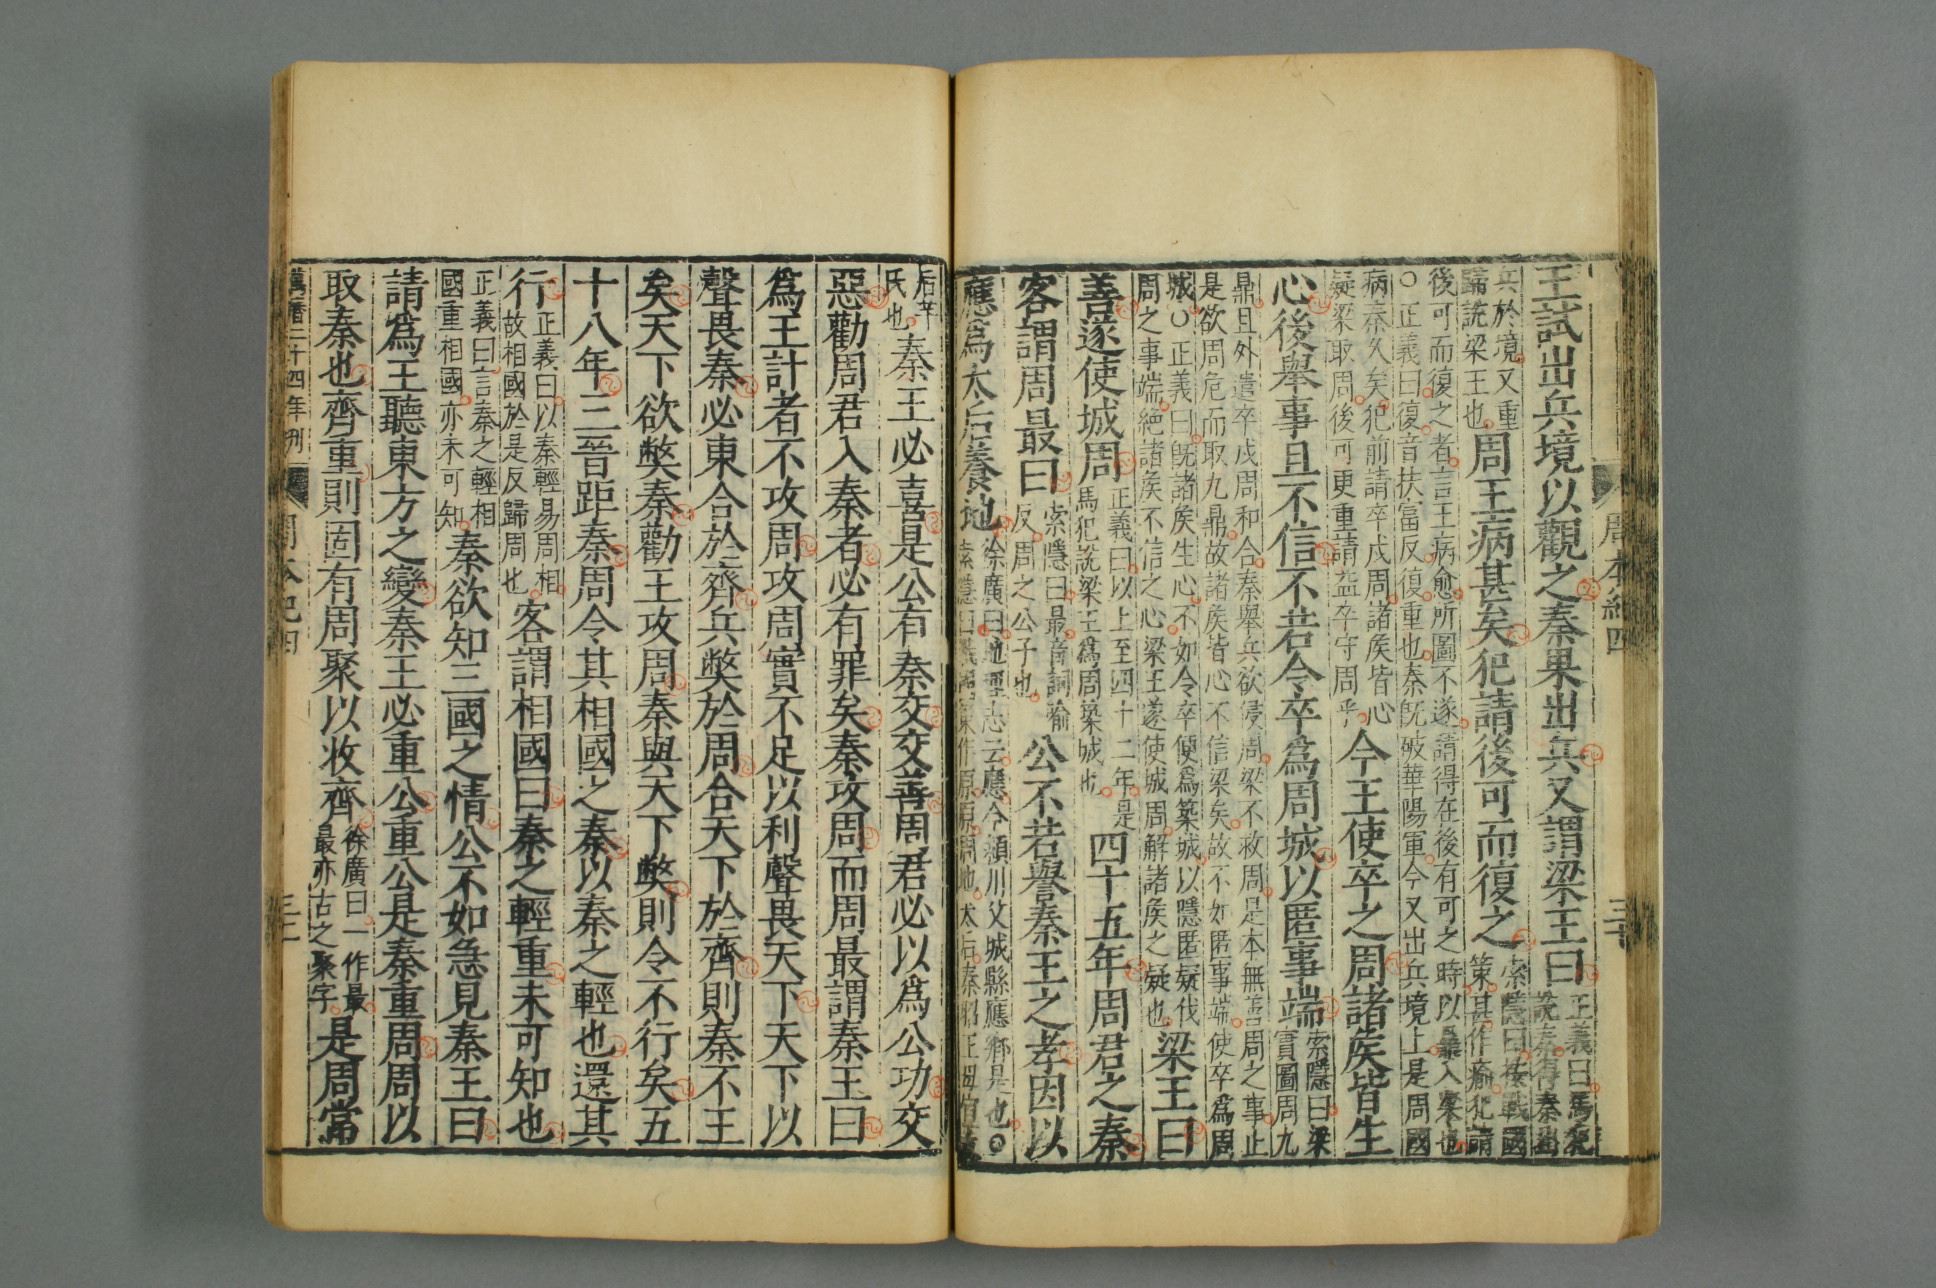 王試出兵境以觀之秦果出兵又謂梁王曰正義曰馬犯說秦得秦出
兵於境又重歸說梁王也周王病甚矣犯請後可而復之索隱曰按戰國策甚作瘉犯請
後可而復之者言王病愈所圖不遂請得在後有可之時以鼎入梁也
○正義曰復音扶富反復重也秦旣破華陽軍今又出兵境上是周國
病秦久矣犯前請卒戍周諸矦皆心疑梁取周後可更重請益卒守周乎今王使卒之周諸矦皆生
心後舉事且不信不若令卒爲周城以匿事端索隱曰梁實圖周九
鼎且外遣卒戍周和合秦舉兵欲侵周梁不救周是本無善周之事止
是欲周危而取九鼎故諸矦皆心不信梁矣故不如匿事端使卒爲周
城○正義曰旣諸矦生心不如令卒便爲築城以隱匿疑伐周之事端絕諸矦不信之心梁王遂使城周解諸矦之疑也梁王曰
善遂使城周正義曰以上至四十二年是馬犯說梁王爲周築城也四十五年周君之秦
客謂周最曰索隱曰最音詞喻反周之公子也公不若譽秦王之孝因以
應爲太后養地徐廣曰地理志云應今潁川父城縣應鄉是也○
后芈氏也秦王必喜是公有秦交交善周君必以爲公功交
惡勸周君入秦者必有罪矣秦攻周而周最謂秦王曰
爲王計者不攻周攻周實不足以利聲畏天下天下以
聲畏秦必東合於齊兵獘於周合天下於齊則秦不王
矣天下欲獘秦勸王攻周秦與天下獘則令不行矣五
十八年三晉距秦周令其相國之秦以秦之輕也還其
行正義曰以秦輕易周相故相國於是反歸周也客謂相國曰秦之輕重未可知也
正義曰言秦之輕相國重相國亦未可知秦欲知三國之情公不如急見秦王曰
請爲王聽東方之變秦王必重公重公是秦重周周以
取秦也齊重則固有周聚以收齊徐廣曰一作最最亦古之聚字是周常
周本紀四
三十
萬曆二十四年刊
周本紀四
三十一